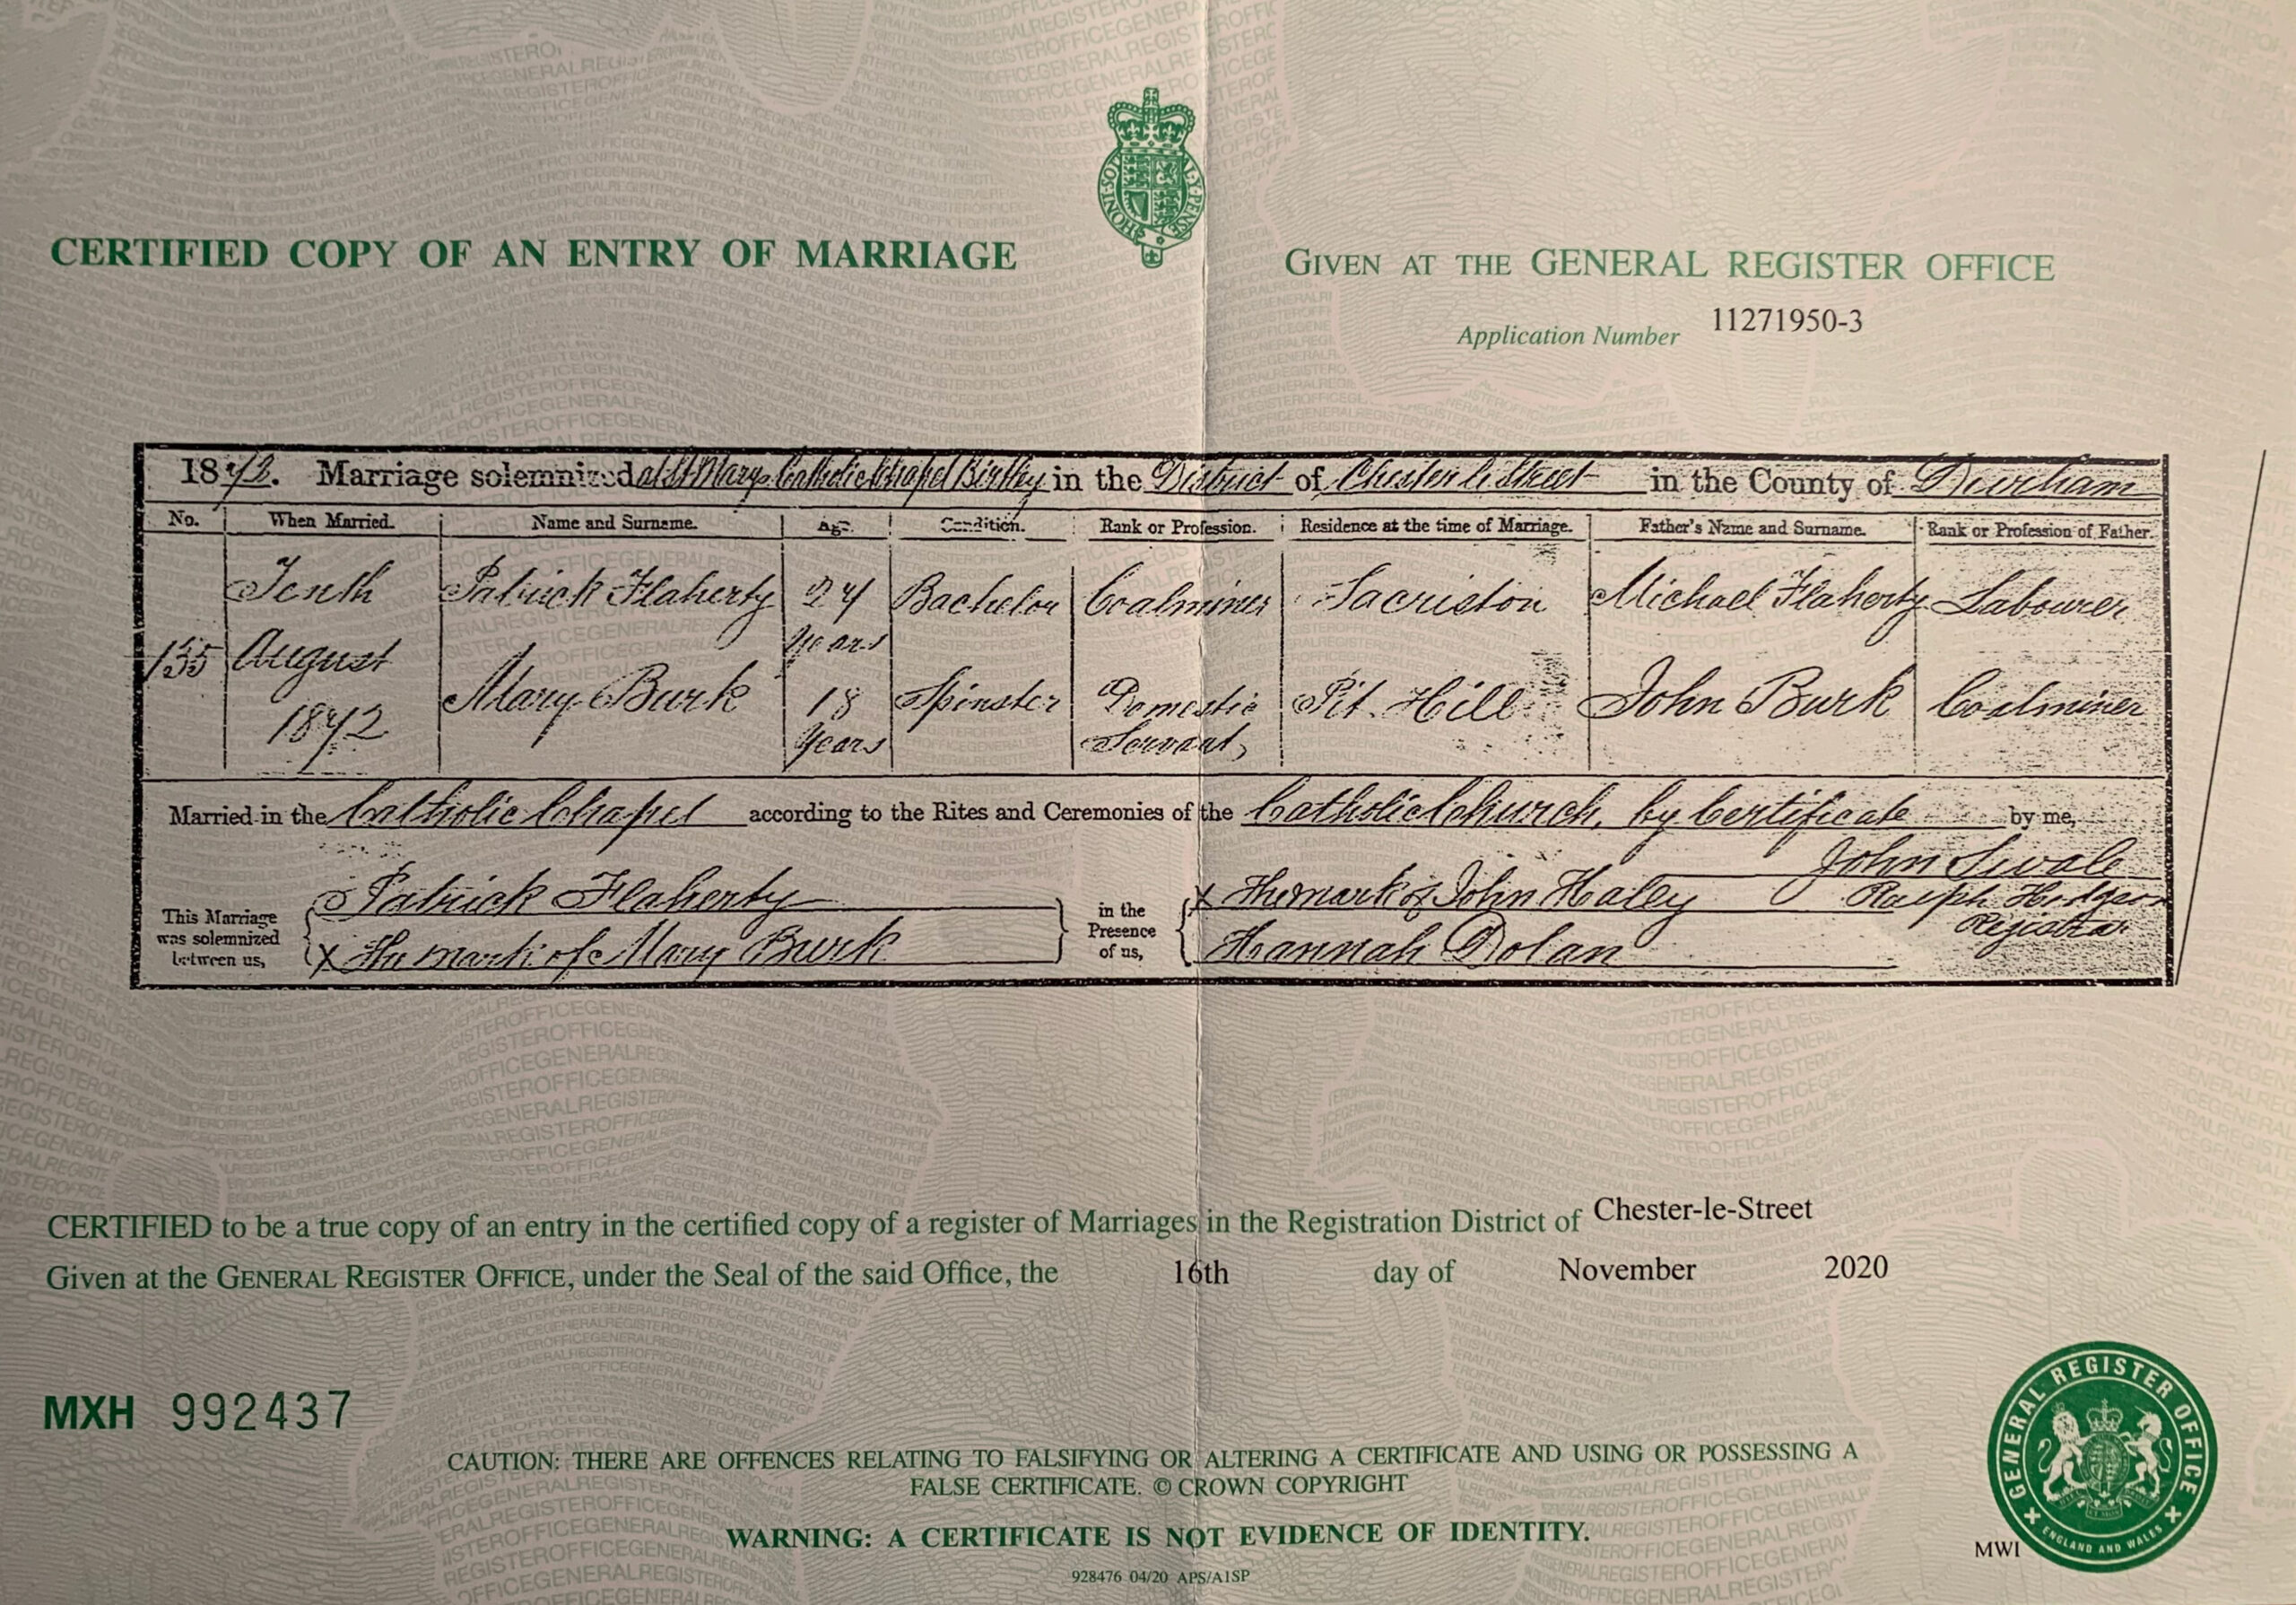 CERTIFIED COPY OF AN ENTRY OF MARRIAGE
GIVEN AT THE GENERAL REGISTER OFFICE
Application Number 11271950-3
1872. Marriage solemnized at St Marys Catholic Chapel Birtley in the District of Chester le Street in the County of Durham
No. When Married. Name and Surname. Age. Condition. Rank or Profession. Residence at the time of Marriage. Father's Name and Surname. Rank or Profession of Father.
Tenth Patrick Flaherty 24 Bachelor Coalminer Sacriston Michael Flaherty Labourer
Years
135 August
Mary Burk 18 Spinster Domestic Pit Hill John Burk Coalminer
1872 Years Servant
Married in the Catholic Chapel according to the Rites and Ceremonies of the Catholic Church, by Certificate by me,
John Swale
This Marriage was solemnized between us,
Patrick Flaherty
X The mark of Mary Burk
in the Presence of us,
X The mark of John Haley
Hannah Dolan
Ralph Hodgson
Registrar
CERTIFIED to be a true copy of an entry in the certified copy of a register of Marriages in the Registration District of Chester-le-Street
Given at the GENERAL REGISTER OFFICE, under the Seal of the said Office, the 16th day of November 2020
MXH 992437
CAUTION: THERE ARE OFFENCES RELATING TO FALSIFYING OR ALTERING A CERTIFICATE AND USING OR POSSESSING A
FALSE CERTIFICATE. © CROWN COPYRIGHT
WARNING: A CERTIFICATE IS NOT EVIDENCE OF IDENTITY.
928476 04/20 APS/A1SP
MWI
GENERAL REGISTER OFFICE
ENGLAND AND WALES